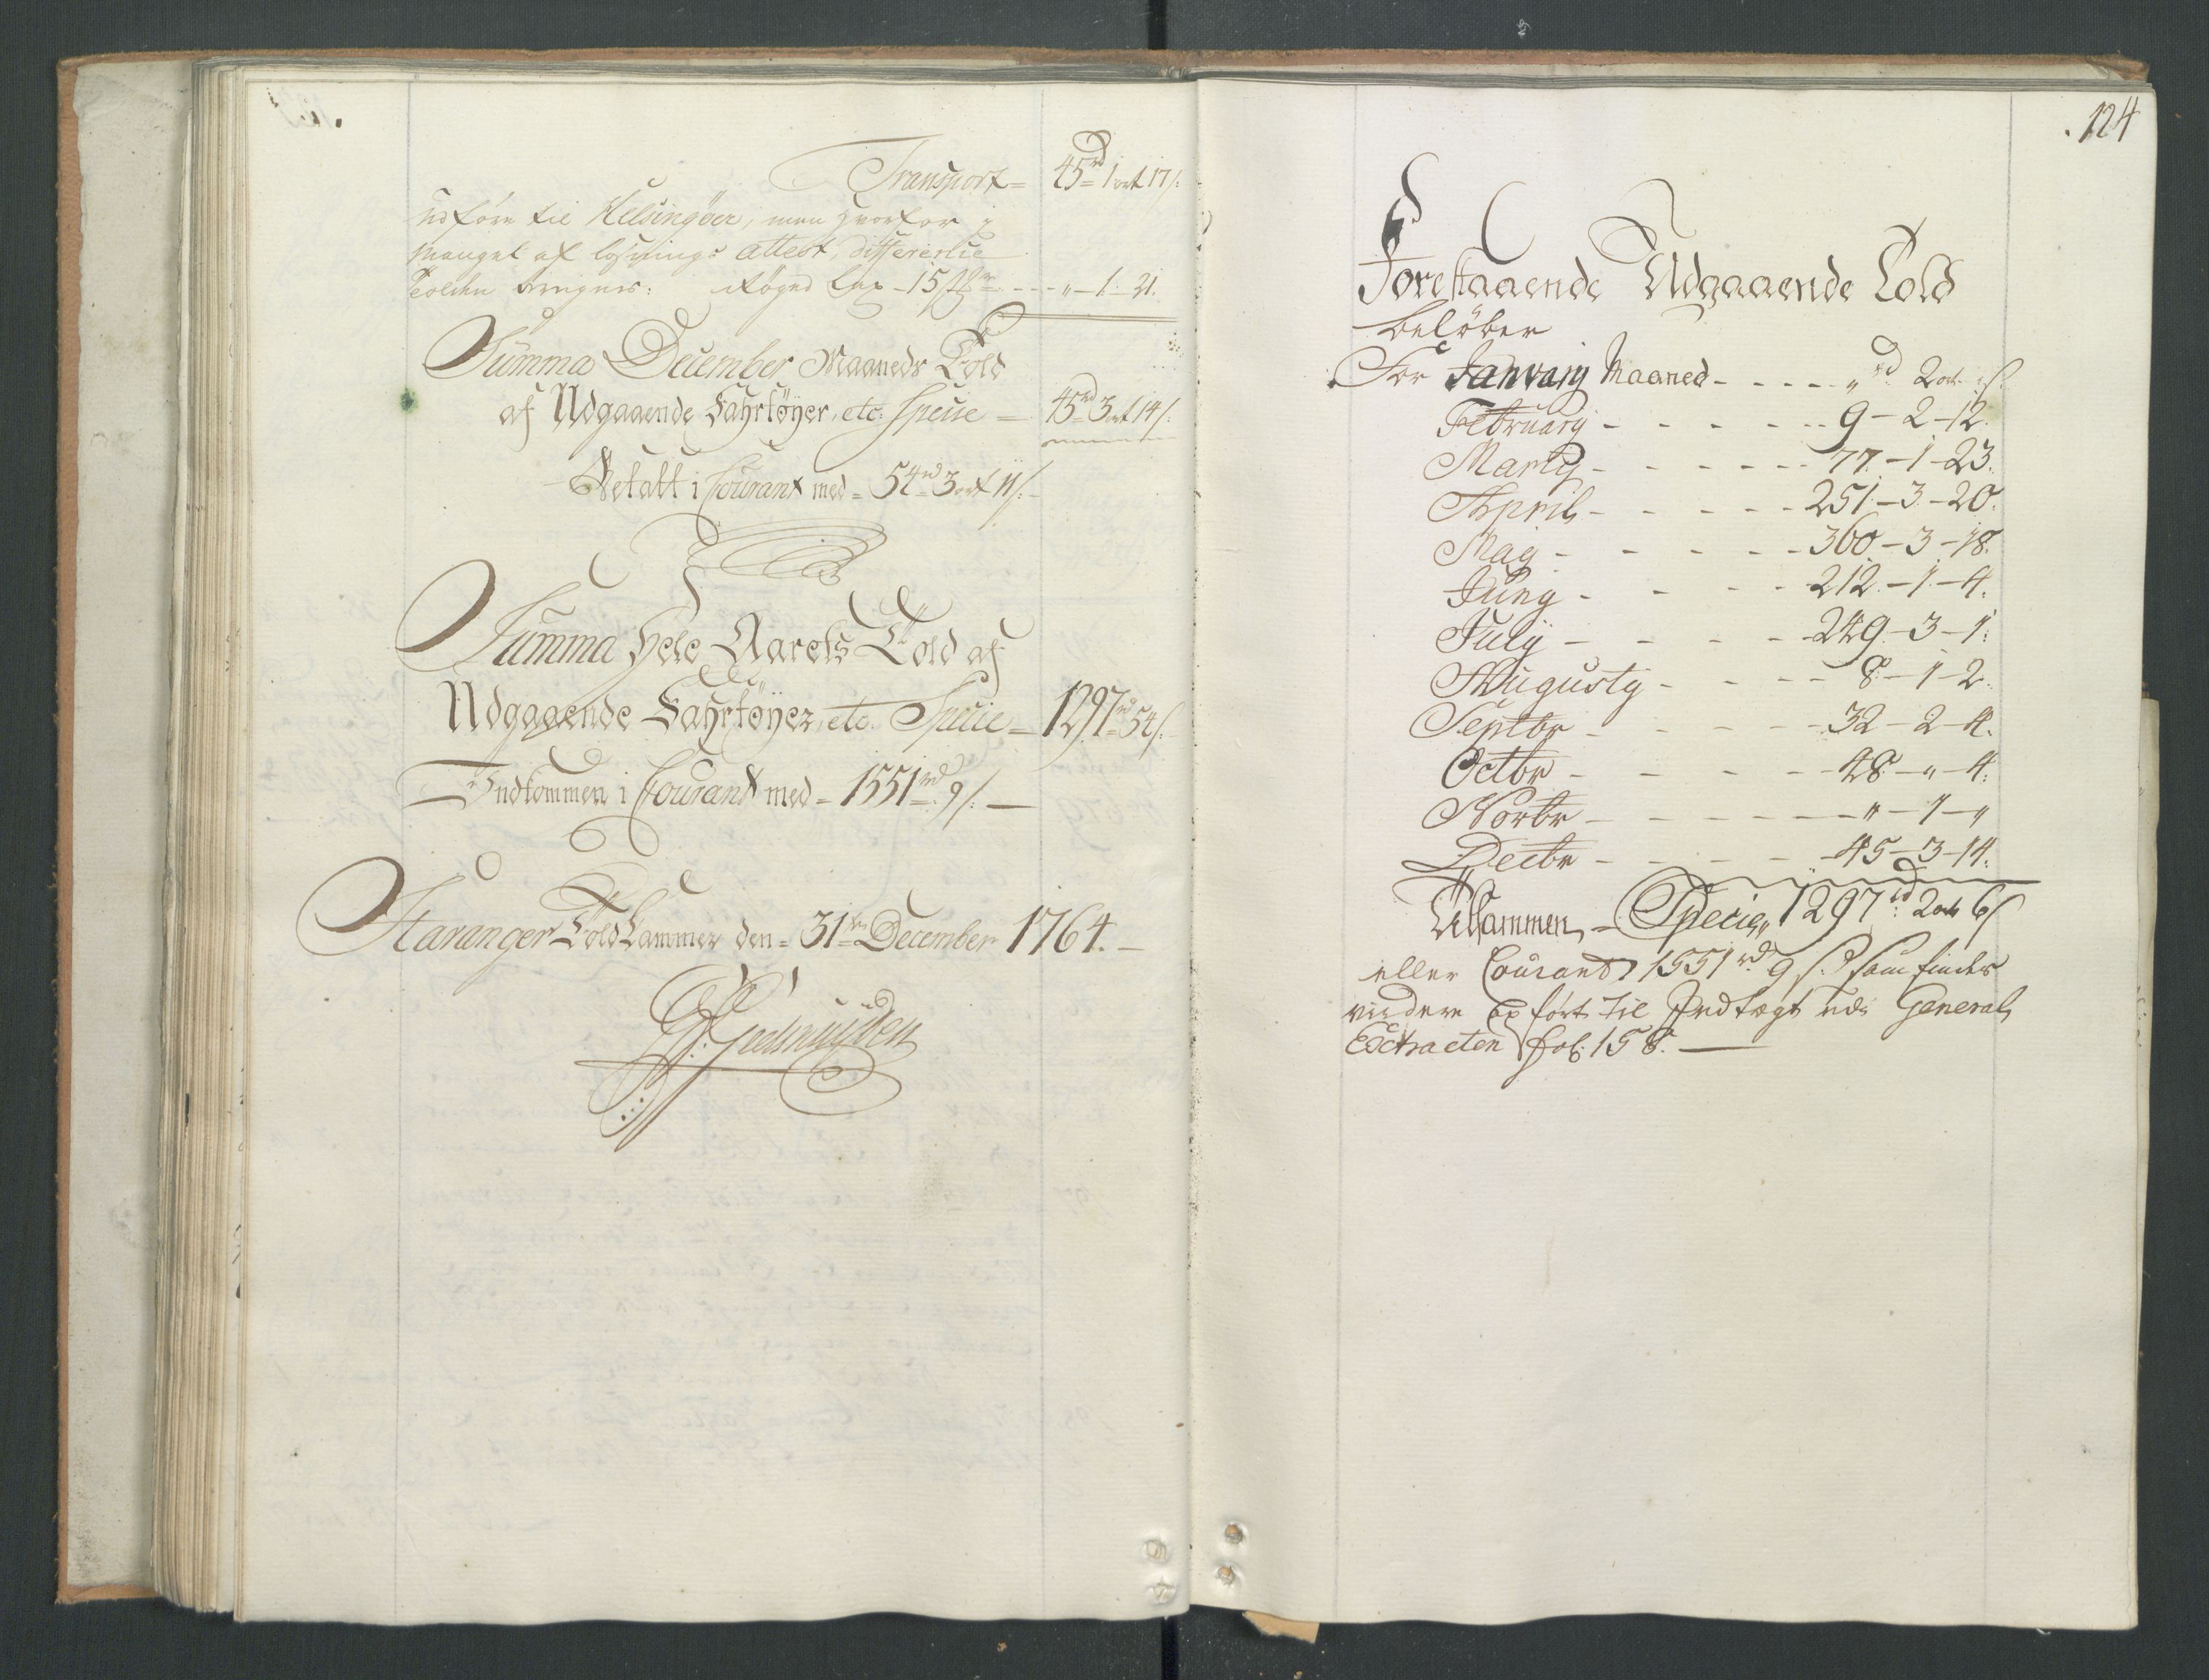 Transport = 45rd 1 ort 17 s:
udføre til Helsingøer, men hvorfor j
mangel af losnings attest, differentie
Tolden svarges: Røged Lax 15 - - - " - 1 - 21.
Summa December Maaneds Told
af Udgaaende Fahrtøyer, etc: Specie = 45rd 3 ort 14 s:
Betalt i Courant med = 54rd 3 ort 11 s: -
Summa Hele Aarets Told af
Udgaaende Fahrtøyer, etc. Specie = 1297rd 54 s.
Indkommen i Courant med = 1551rd 9 s: —
Stavanger Told Kammer den = 31te December 1764. -
. 124
Forestaaende Udgaaende Told
beløber
For January Maaned - - - - " rd 2 ort " s
February - - - - - 9 - 2 - 12.
Marty - - - - - 77. - 1 - 23.
April - - - - - 251. - 3 - 20.
May - - - - - 360 - 3 - 18.
Juny - - - - 212. - 1 - 4.
July - - - - 249 - 3 - 1.
Augusty - - - - 8 - 1 - 2.
Septbr - - - - 32 - 2 - 4.
Octbr - - - - 48 - " - 4.
Novbr - - - - - " - 1 - "
Decbr - - - - - 45 - 3 - 14.
Tilsammen - Specie 1297rd 2 ort 6 s
eller Courant 1551rd 9 s: som findes
videre Opført til Indtægt udi General
Extracten fol: 158. —